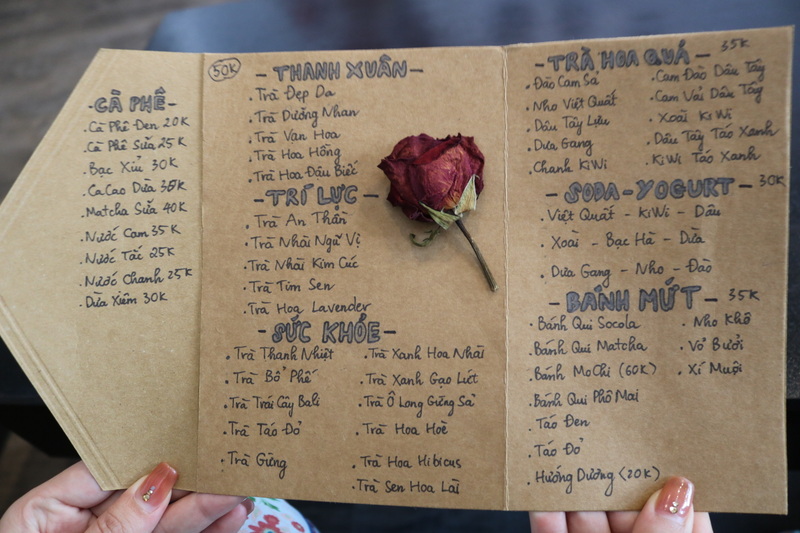 - CÀ PHÊ -
. Cà Phê Đen 20K
. Cà Phê Sữa 25K
. Bạc Xỉu 30K
. CaCao Dừa 35K
. Matcha Sữa 40K
. Nước Cam 35K
. Nước Tắc 25K
. Nước Chanh 25K
. Dừa Xiêm 30K
50K
- THANH XUÂN -
. Trà Đẹp Da
. Trà Dưỡng Nhan
. Trà Vạn Hoa
. Trà Hoa Hồng
. Trà Hoa Đậu Biếc
- TRÍ LỰC -
. Trà An Thần
. Trà Nhài Ngũ Vị
. Trà Nhài Kim Cúc
. Trà Tim Sen
. Trà Hoa Lavender
- SỨC KHỎE -
. Trà Thanh Nhiệt
. Trà Bổ Phế
. Trà Trái Cây Bali
. Trà Táo Đỏ
. Trà Gừng
. Trà Xanh Hoa Nhài
. Trà Xanh Gạo Lứt
. Trà Ô Long Gừng Sả
. Trà Hoa Hòe
. Trà Hoa Hibicus
. Trà Sen Hoa Lài
- TRÀ HOA QUẢ - 35K
. Đào Cam Sả
. Nho Việt Quất
. Dâu Tây Lựu
. Dưa Gang
. Chanh KiWi
. Cam Đào Dâu Tây
. Cam Vải Dâu Tây
. Xoài KiWi
. Dâu Tây Táo Xanh
. KiWi Táo Xanh
- SODA - YOGURT - 30K
. Việt Quất - KiWi - Dâu
. Xoài - Bạc Hà - Dừa
. Dưa Gang - Nho - Đào
- BÁNH MỨT - 35K
. Bánh Qui Socola
. Bánh Qui Matcha
. Bánh MoChi (60K)
. Bánh Qui Phô Mai
. Táo Đen
. Táo Đỏ
. Hướng Dương (20K)
. Nho Khô
. Vỏ Bưởi
. Xí Muội